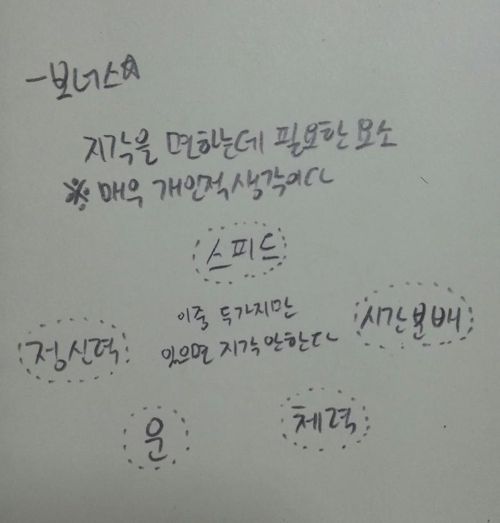 -보너스☆
지각을 면하는데 필요한 요소
※ 매우 개인적 생각이다
스피드
이중 두가지만
있으면 지각 안한다
시간분배
정신력
체력
운